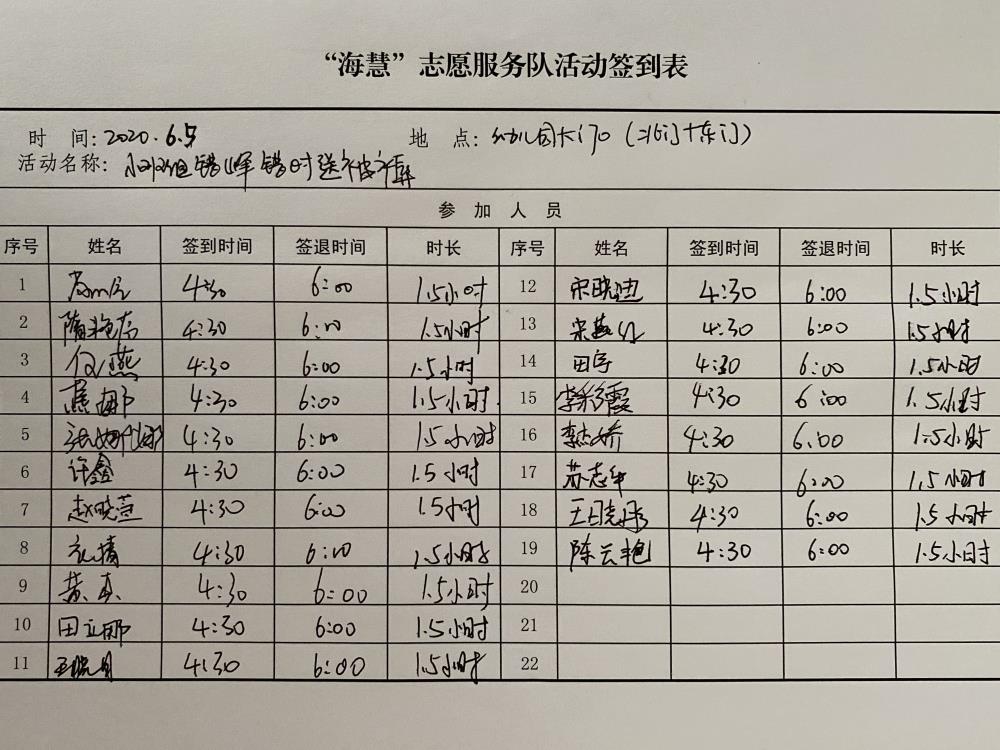 “海慧”志愿服务队活动签到表
时 间: 2020.6.5 地 点: 幼儿园大门口（北门+东门）
活动名称: 错峰错时送被褥
参 加 人 员
序号 姓名 签到时间 签退时间 时长 序号 姓名 签到时间 签退时间 时长
1 4:30 6:00 1.5小时 12 宋晓迪 4:30 6:00 1.5小时
2 4:30 6:00 1.5小时 13 宋燕红 4:30 6:00 1.5小时
3 仪燕 4:30 6:00 1.5小时 14 田宇 4:30 6:00 1.5小时
4 焦娜 4:30 6:00 1.5小时 15 李彩霞 4:30 6:00 1.5小时
5 4:30 6:00 1.5小时 16 娇 4:30 6:00 1.5小时
6 许鑫 4:30 6:00 1.5小时 17 苏志华 4:30 6:00 1.5小时
7 赵晓萱 4:30 6:00 1.5小时 18 王晓彤 4:30 6:00 1.5小时
8 倩 4:30 6:00 1.5小时 19 陈云艳 4:30 6:00 1.5小时
9 黄真 4:30 6:00 1.5小时 20
10 田立娜 4:30 6:00 1.5小时 21
11 4:30 6:00 1.5小时 22